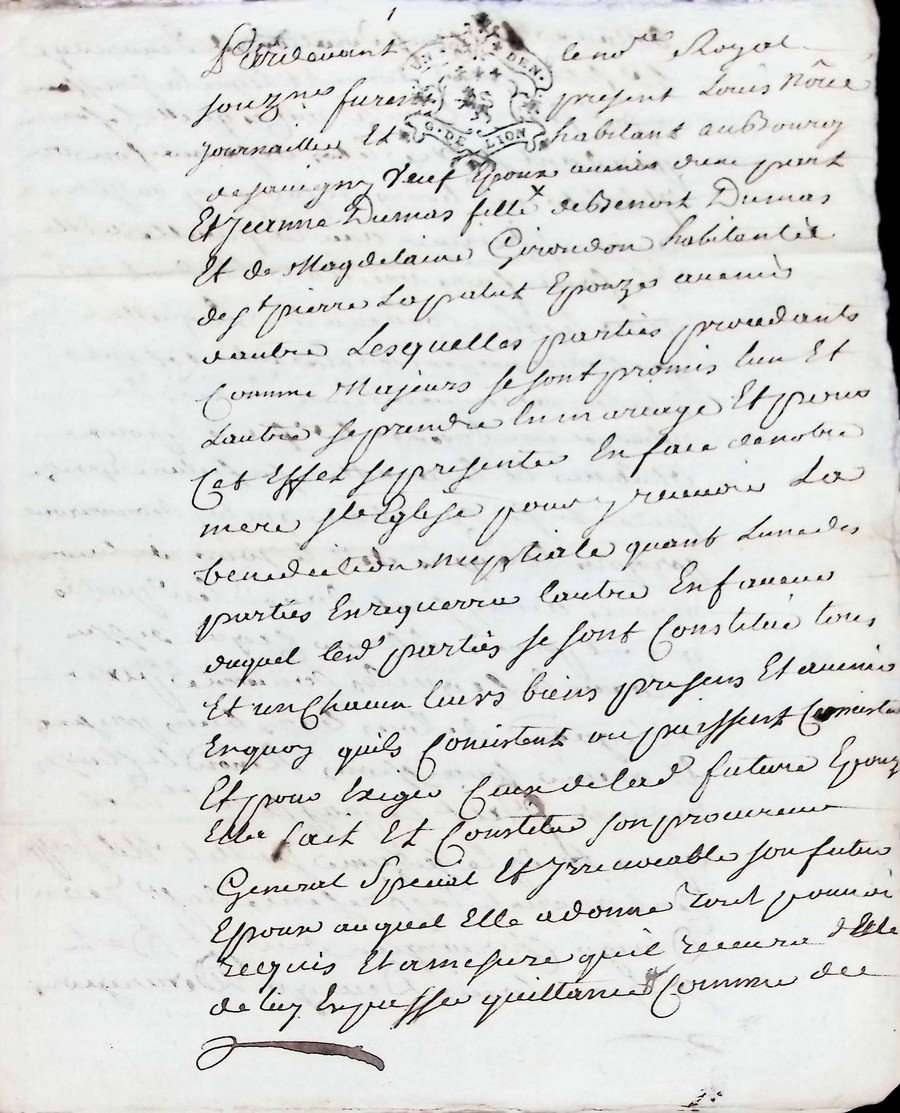 Pardevant le no.re Royal
souz.nes furent present Louis Nôue
journaillier Et habitant au Bourg
de savigny veuf Epoux avenir dune part
Et Jeanne Dumas fille de Benoit Dumas
Et de Magdelaine Girondon habitante
de S.t pierre Lapalut Epouze avenir
dautre Lesquelles parties procedants
Comme Majeurs se sont promis lun Et
Lautre se prendre En mariage Et pour
Cet Effet se presenter En face de notre
mere s.te Eglise pour y recevoir La
benediction nuptiale quant Lune des
parties En requerra lautre En faveur
duquel lesd. parties se sont Constitué tous
Et un Chacun leurs biens presens Et avenir
En quoy quils Consistent ou puissent Consister
Et pour Exiger Ceux de lad. future Epouze
Elle fait Et Constitue son procureur
General Special Et Irrevocable son futur
Epoux auquel Elle a donné tout pouvoir
requis Et a mesure quil recevra d'Elle
de luy En passer quittance Comme de
UN DEN.
G. DE LION